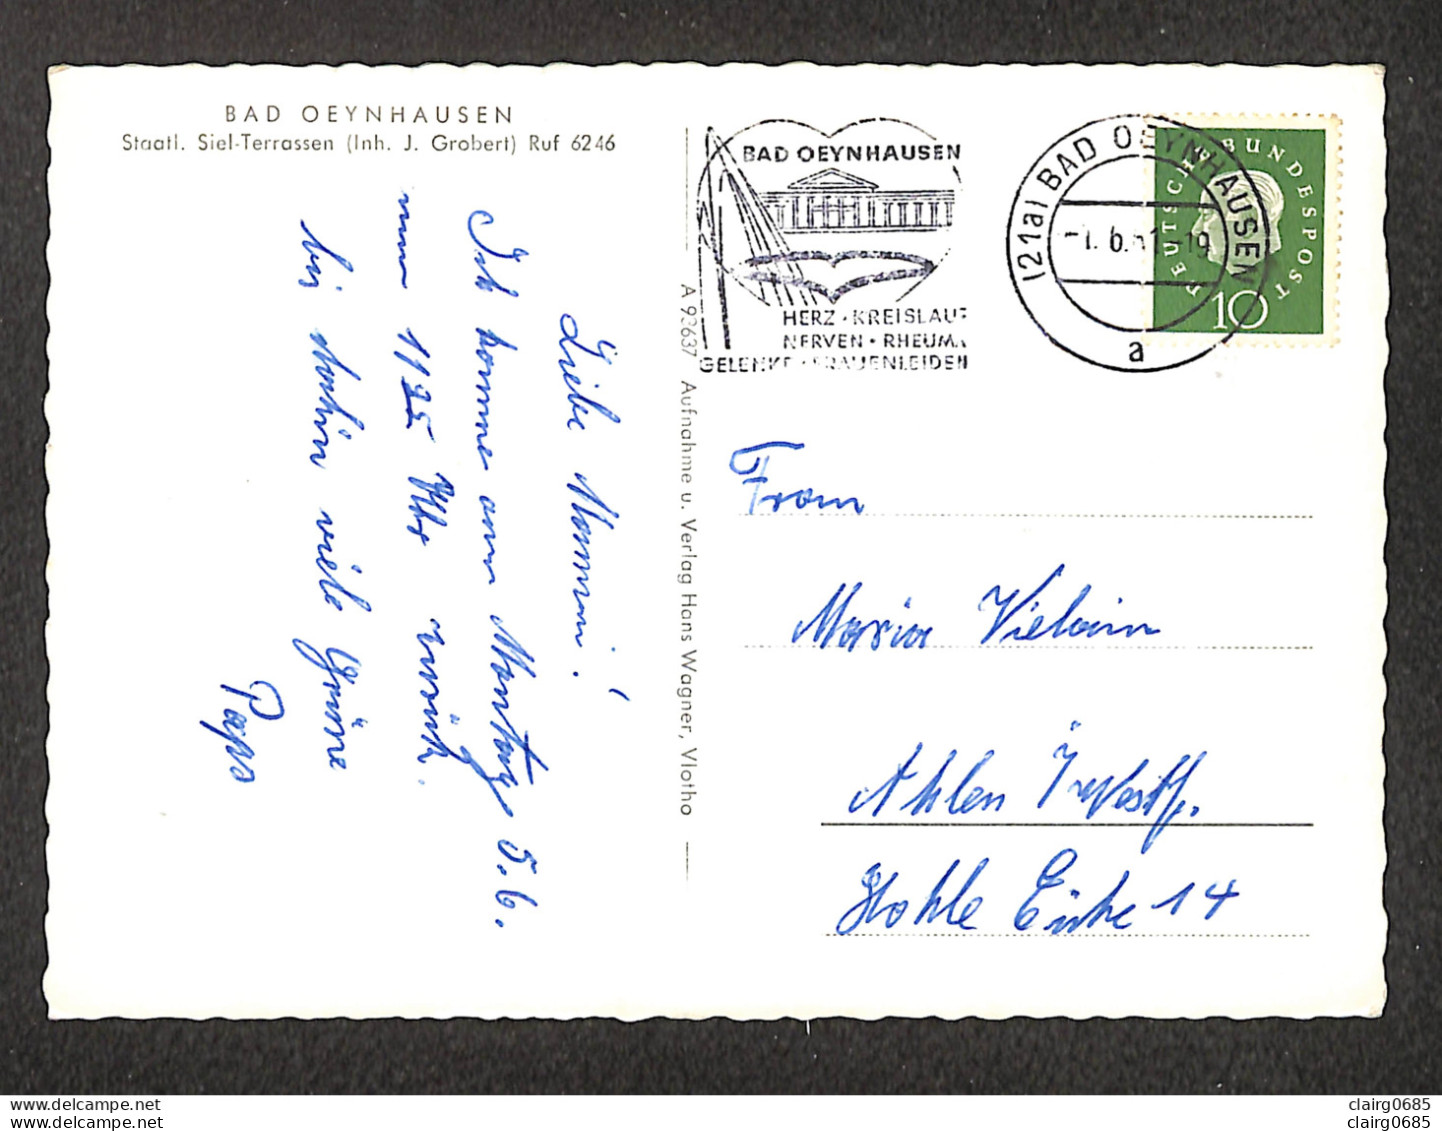 BAD OEYNHAUSEN
Staatl. Siel-Terrassen (Inh. J. Grobert) Ruf 6246
Liebe Mammi!
Ich komme am Montag 5.6.
um 1125 Uhr zurück.
bis dahin viele Grüsse
Paps
A 93637 Aufnahme u. Verlag Hans Wagner, Vlotho
BAD OEYNHAUSEN
HERZ · KREISLAUF
NERVEN · RHEUMA
GELENKE · FRAUENLEIDEN
(21a) BAD OEYNHAUSEN
-1.6.61-19
a
DEUTSCHE BUNDESPOST
10
Frau
Maria Vielain
Ahlen i/Westf.
Hohle Eiche 14
delcampe.net
delcampe.net
clairg0685
clairg0685